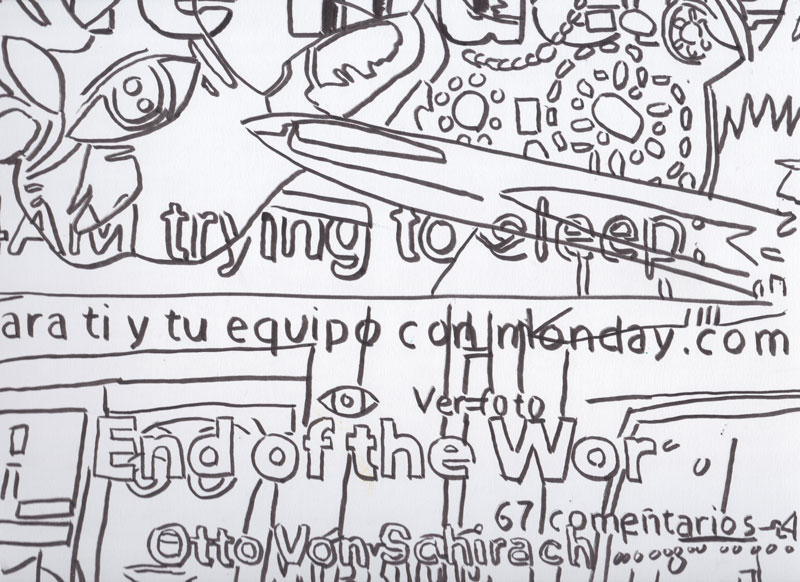 4AM trying to sleep:
ara ti y tu equipo con monday.com
Ver foto
End of the Wor
67 comentarios
Otto Von Schirach